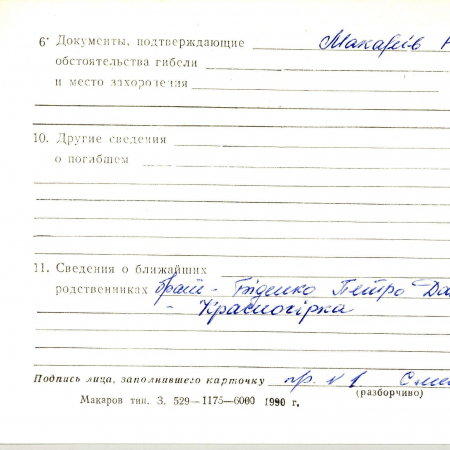 6· Документы, подтверждающие Макарів
обстоятельства гибели
и место захоронения
10. Другие сведения
о погибшем
11. Сведения о ближайших
родственниках брат - Біденко Петро
- Красногірка
Подпись лица, заполнившего карточку пр. № 1
(разборчиво)
Макаров тип. З, 529—1175—6000 1990 г.